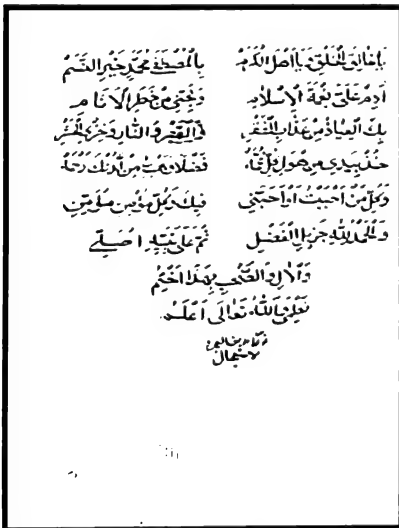 يَا خَالِقَ الْخَلْقِ وَيَا اَهْلَ الْكَرَمْ بِالْمُصْطَفَى مُحَمَّدٍ خَيْرِ النَّسَمْ
اَدِمْ عَلَيَّ نِعْمَةَ الْاِسْلَامِ وَنَجِّنِي مِنْ خَطَرِ الْاَثَامِ
بِكَ الْعِيَاذُ مِنْ عَذَابِ فِي الْقَبْرِ وَالنَّارِ وَخِزْيِ الْحَشْرِ
خُذْ بِيَدِي مِنْ هَوْلِ كُلِّ فَضْلًا وَهَبْ مِنْ لَدُنْكَ رَحْمَهْ
وَكُلُّ مَنْ اَحْبَبْتُ اَوْ اَحَبَّنِي فِيكَ وَكُلُّ مُؤْمِنٍ
وَالْحَمْدُ لِلّٰهِ جَزِيلِ الْفَضْلِ ثُمَّ عَلَى نَبِيِّهِ اُصَلِّي
وَالْاٰلِ وَالصَّحْبِ بِهَذَا اَخْتِمُ
نَظْمِي وَاللّٰهُ تَعَالَى اَعْلَمُ